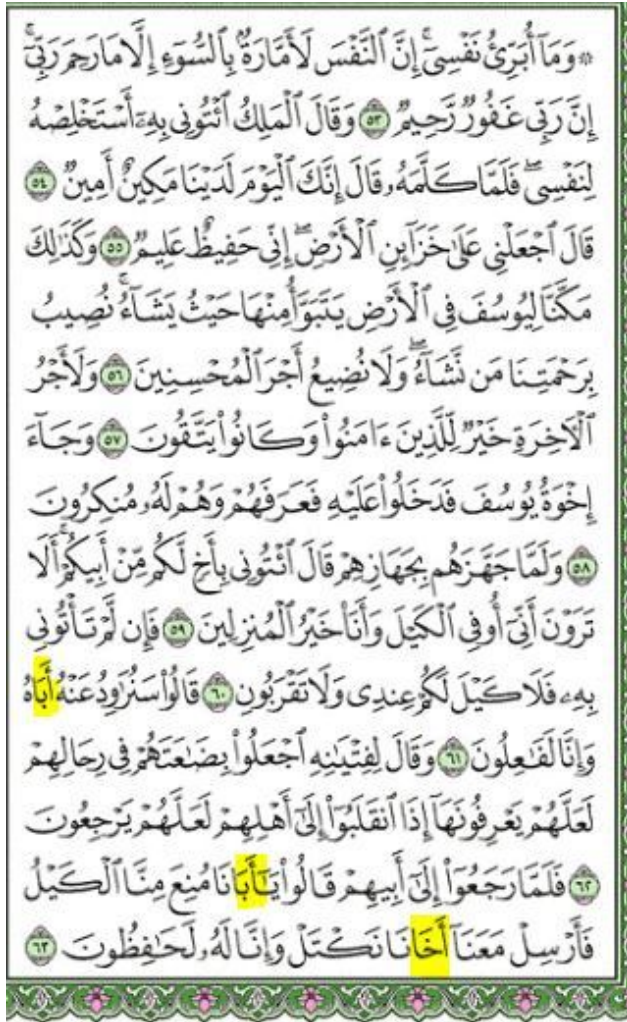 ۞ وَمَآ أُبَرِّئُ نَفْسِىٓ ۚ إِنَّ ٱلنَّفْسَ لَأَمَّارَةٌۢ بِٱلسُّوٓءِ إِلَّا مَا رَحِمَ رَبِّىٓ ۚ
إِنَّ رَبِّى غَفُورٌ رَّحِيمٌ ٥٣ وَقَالَ ٱلْمَلِكُ ٱئْتُونِى بِهِۦٓ أَسْتَخْلِصْهُ
لِنَفْسِى ۖ فَلَمَّا كَلَّمَهُۥ قَالَ إِنَّكَ ٱلْيَوْمَ لَدَيْنَا مَكِينٌ أَمِينٌ ٥٤
قَالَ ٱجْعَلْنِى عَلَىٰ خَزَآئِنِ ٱلْأَرْضِ ۖ إِنِّى حَفِيظٌ عَلِيمٌ ٥٥ وَكَذَٰلِكَ
مَكَّنَّا لِيُوسُفَ فِى ٱلْأَرْضِ يَتَبَوَّأُ مِنْهَا حَيْثُ يَشَآءُ ۚ نُصِيبُ
بِرَحْمَتِنَا مَن نَّشَآءُ ۖ وَلَا نُضِيعُ أَجْرَ ٱلْمُحْسِنِينَ ٥٦ وَلَأَجْرُ
ٱلْءَاخِرَةِ خَيْرٌ لِّلَّذِينَ ءَامَنُوا۟ وَكَانُوا۟ يَتَّقُونَ ٥٧ وَجَآءَ
إِخْوَةُ يُوسُفَ فَدَخَلُوا۟ عَلَيْهِ فَعَرَفَهُمْ وَهُمْ لَهُۥ مُنكِرُونَ
٥٨ وَلَمَّا جَهَّزَهُم بِجَهَازِهِمْ قَالَ ٱئْتُونِى بِأَخٍ لَّكُم مِّنْ أَبِيكُمْ ۚ أَلَا
تَرَوْنَ أَنِّىٓ أُوفِى ٱلْكَيْلَ وَأَنَا۠ خَيْرُ ٱلْمُنزِلِينَ ٥٩ فَإِن لَّمْ تَأْتُونِى
بِهِۦ فَلَا كَيْلَ لَكُمْ عِندِى وَلَا تَقْرَبُونِ ٦٠ قَالُوا۟ سَنُرَٰوِدُ عَنْهُ أَبَاهُ
وَإِنَّا لَفَٰعِلُونَ ٦١ وَقَالَ لِفِتْيَٰنِهِ ٱجْعَلُوا۟ بِضَٰعَتَهُمْ فِى رِحَالِهِمْ
لَعَلَّهُمْ يَعْرِفُونَهَآ إِذَا ٱنقَلَبُوٓا۟ إِلَىٰٓ أَهْلِهِمْ لَعَلَّهُمْ يَرْجِعُونَ
٦٢ فَلَمَّا رَجَعُوٓا۟ إِلَىٰٓ أَبِيهِمْ قَالُوا۟ يَٰٓأَبَانَا مُنِعَ مِنَّا ٱلْكَيْلُ
فَأَرْسِلْ مَعَنَآ أَخَانَا نَكْتَلْ وَإِنَّا لَهُۥ لَحَٰفِظُونَ ٦٣